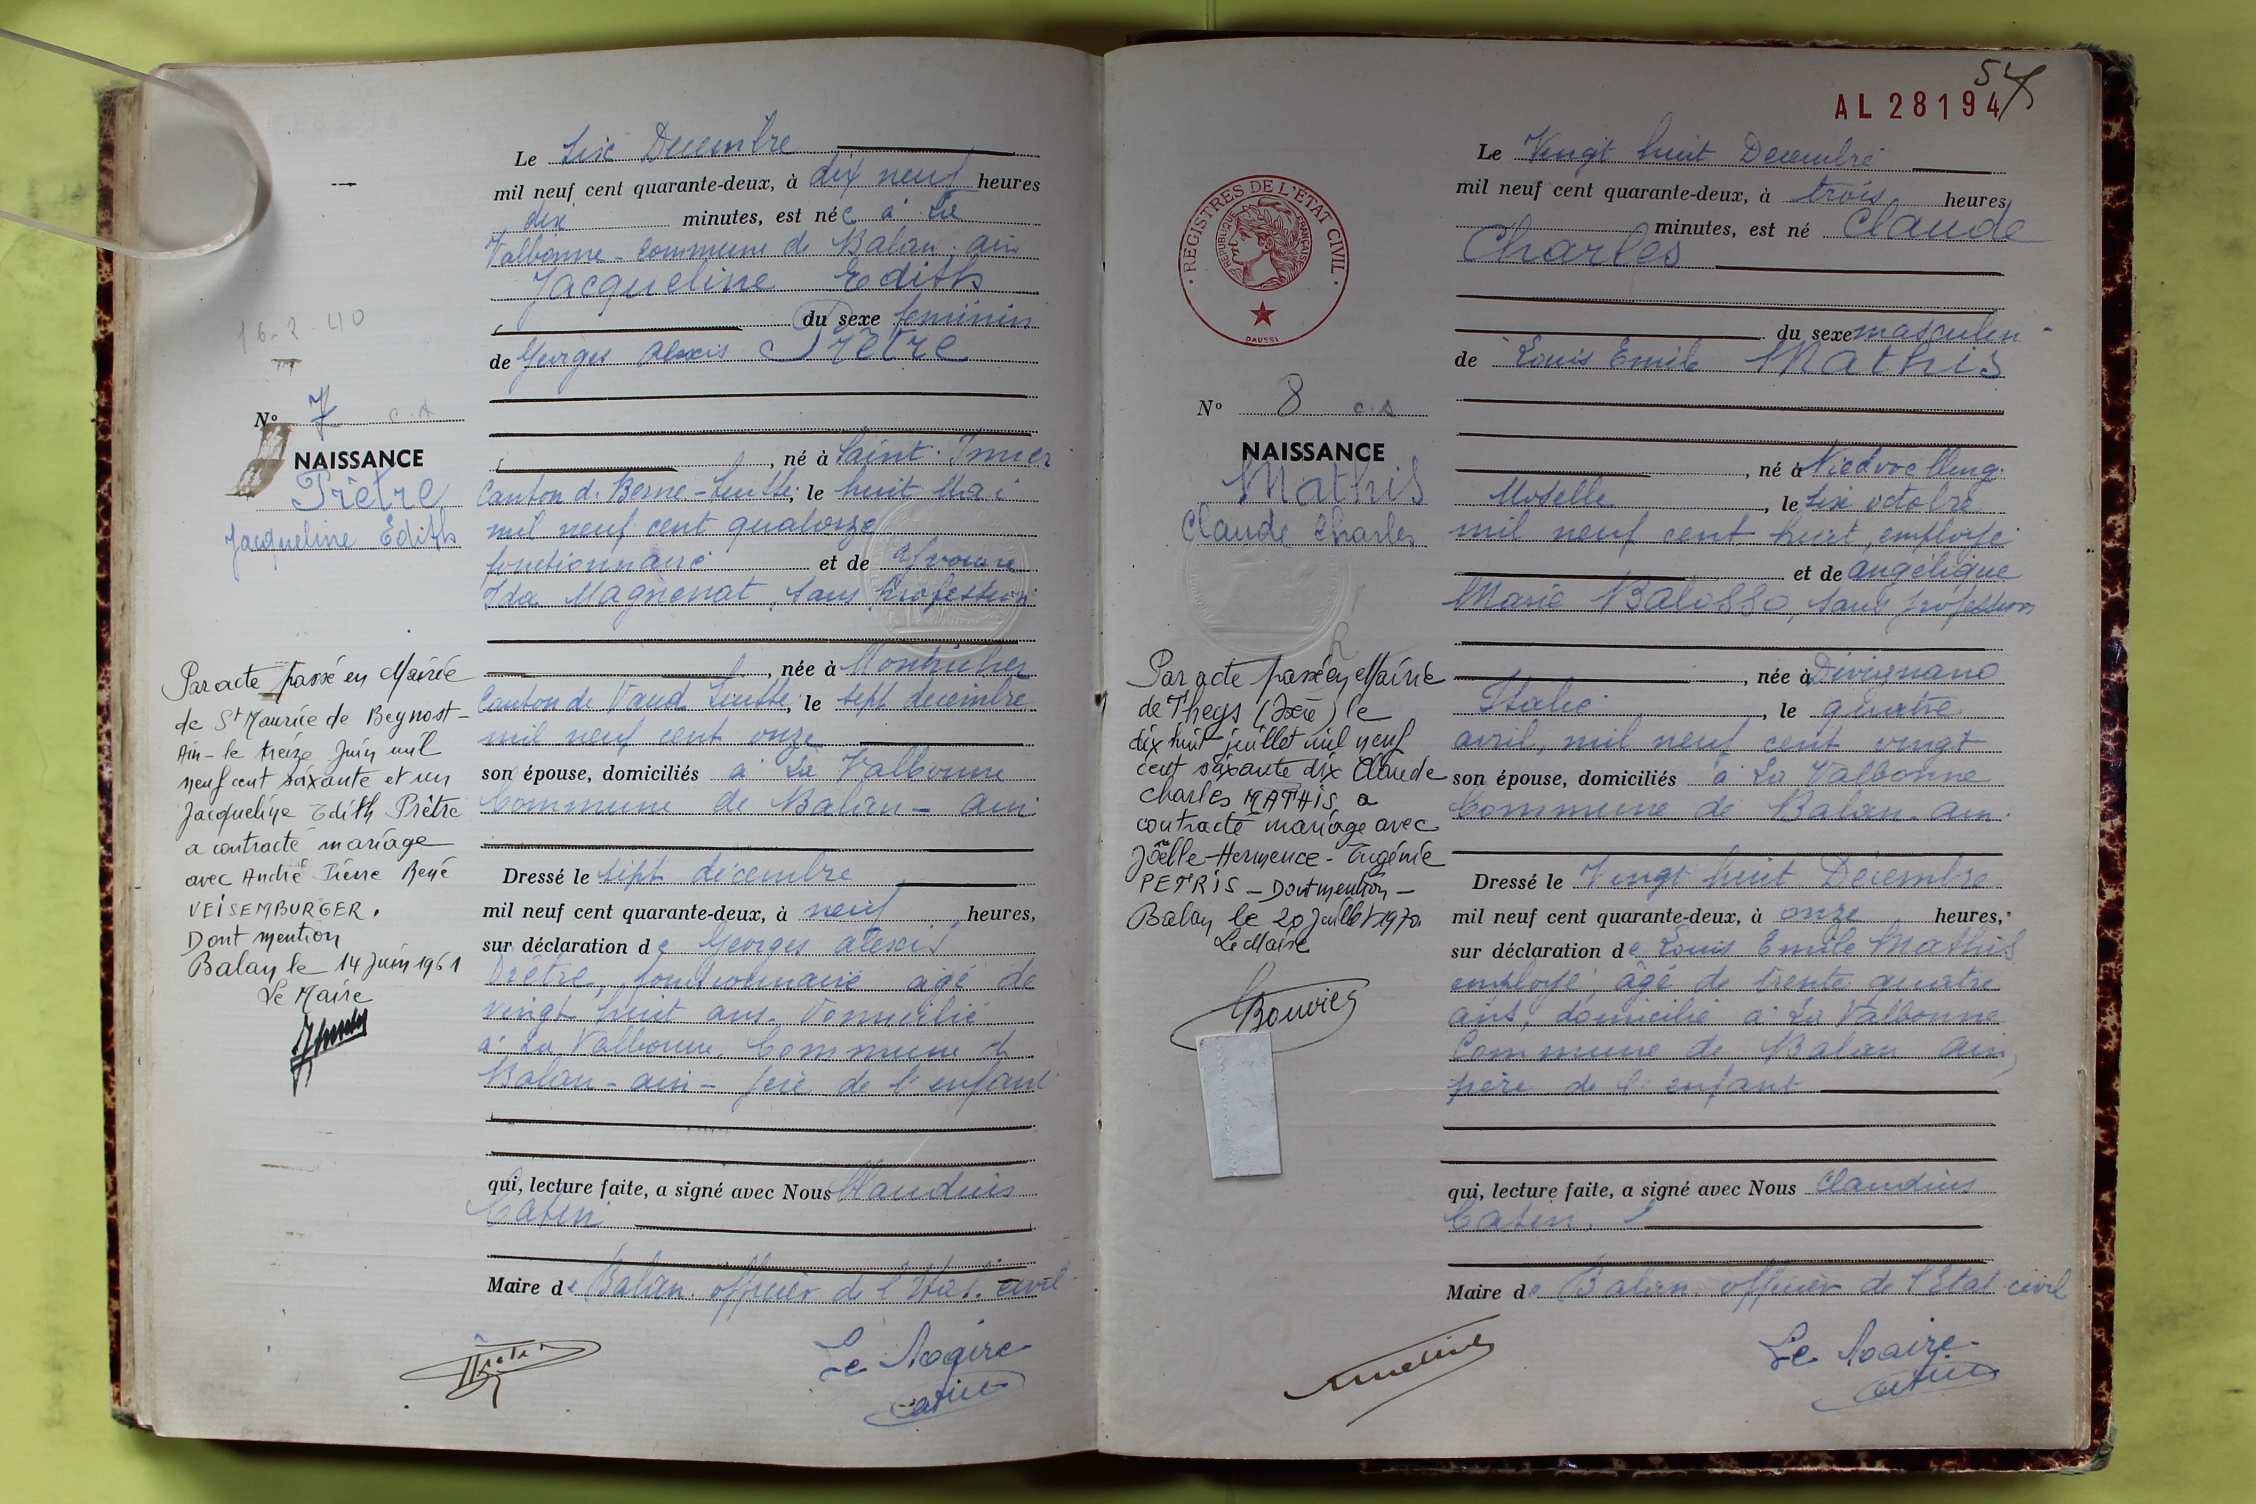 Le six Decembre
mil neuf cent quarante-deux, à dix neuf heures
dix minutes, est née à La
Valbonne - commune de Balan - ain
Jacqueline Edith
du sexe féminin
de Georges Alexis Prêtre
16-2-40
N° 7
NAISSANCE
Prêtre
Jacqueline Edith
, né à Saint-Imier
Canton de Berne - Suisse, le huit Mai
mil neuf cent quatorze
fonctionnaire et de Yvonne
Ida Magnenat, sans profession
, née à
Canton de Vaud Suisse, le sept décembre
mil neuf cent onze
son épouse, domiciliés à La Valbonne
Commune de Balan - ain
Dressé le sept décembre
mil neuf cent quarante-deux, à neuf heures,
sur déclaration de Georges Alexis
Prêtre, fonctionnaire âgé de
vingt huit ans. Domicilié
à La Valbonne. Commune de
Balan - ain - père de l'enfant
qui, lecture faite, a signé avec Nous Claudius
Catin
Maire de Balan. officier de l'Etat civil
Le Maire
Catin
Par acte passé en Mairie
de St Maurice de Beynost -
Ain - le treize Juin mil
neuf cent soixante et un
Jacqueline Edith Prêtre
a contracté mariage
avec André Pierre René
VEISEMBURGER.
Dont mention
Balan le 14 Juin 1961
Le Maire
54
AL 28194
Le Vingt huit Decembre
mil neuf cent quarante-deux, à trois heures
minutes, est né Claude
Charles
du sexe masculin
de Louis Emile Mathis
REGISTRES DE L'ETAT CIVIL
REPUBLIQUE FRANÇAISE
DAUSSI
N° 8 c.s
NAISSANCE
Mathis
Claude Charles
, né à
Moselle, le six octobre
mil neuf cent huit, employé
et de Angélique
Marie Balosso, sans profession
, née à Divignano
Italie, le quatre
avril, mil neuf cent vingt
son épouse, domiciliés à La Valbonne
Commune de Balan - ain.
Dressé le Vingt huit Décembre
mil neuf cent quarante-deux, à onze heures,
sur déclaration de Louis Emile Mathis
employé, âgé de trente quatre
ans, domicilié à La Valbonne
Commune de Balan ain,
père de l'enfant
qui, lecture faite, a signé avec Nous Claudius
Catin.
Maire de Balan. officier de l'Etat civil
Le Maire
Catin
Par acte passé en Mairie
de Theys (Isère) le
dix huit juillet mil neuf
cent soixante dix Claude
Charles MATHIS a
contracté mariage avec
Joëlle - Hermence - Eugénie
PETRIS - Dont mention -
Balan le 20 juillet 1970
Le Maire
Bouvier